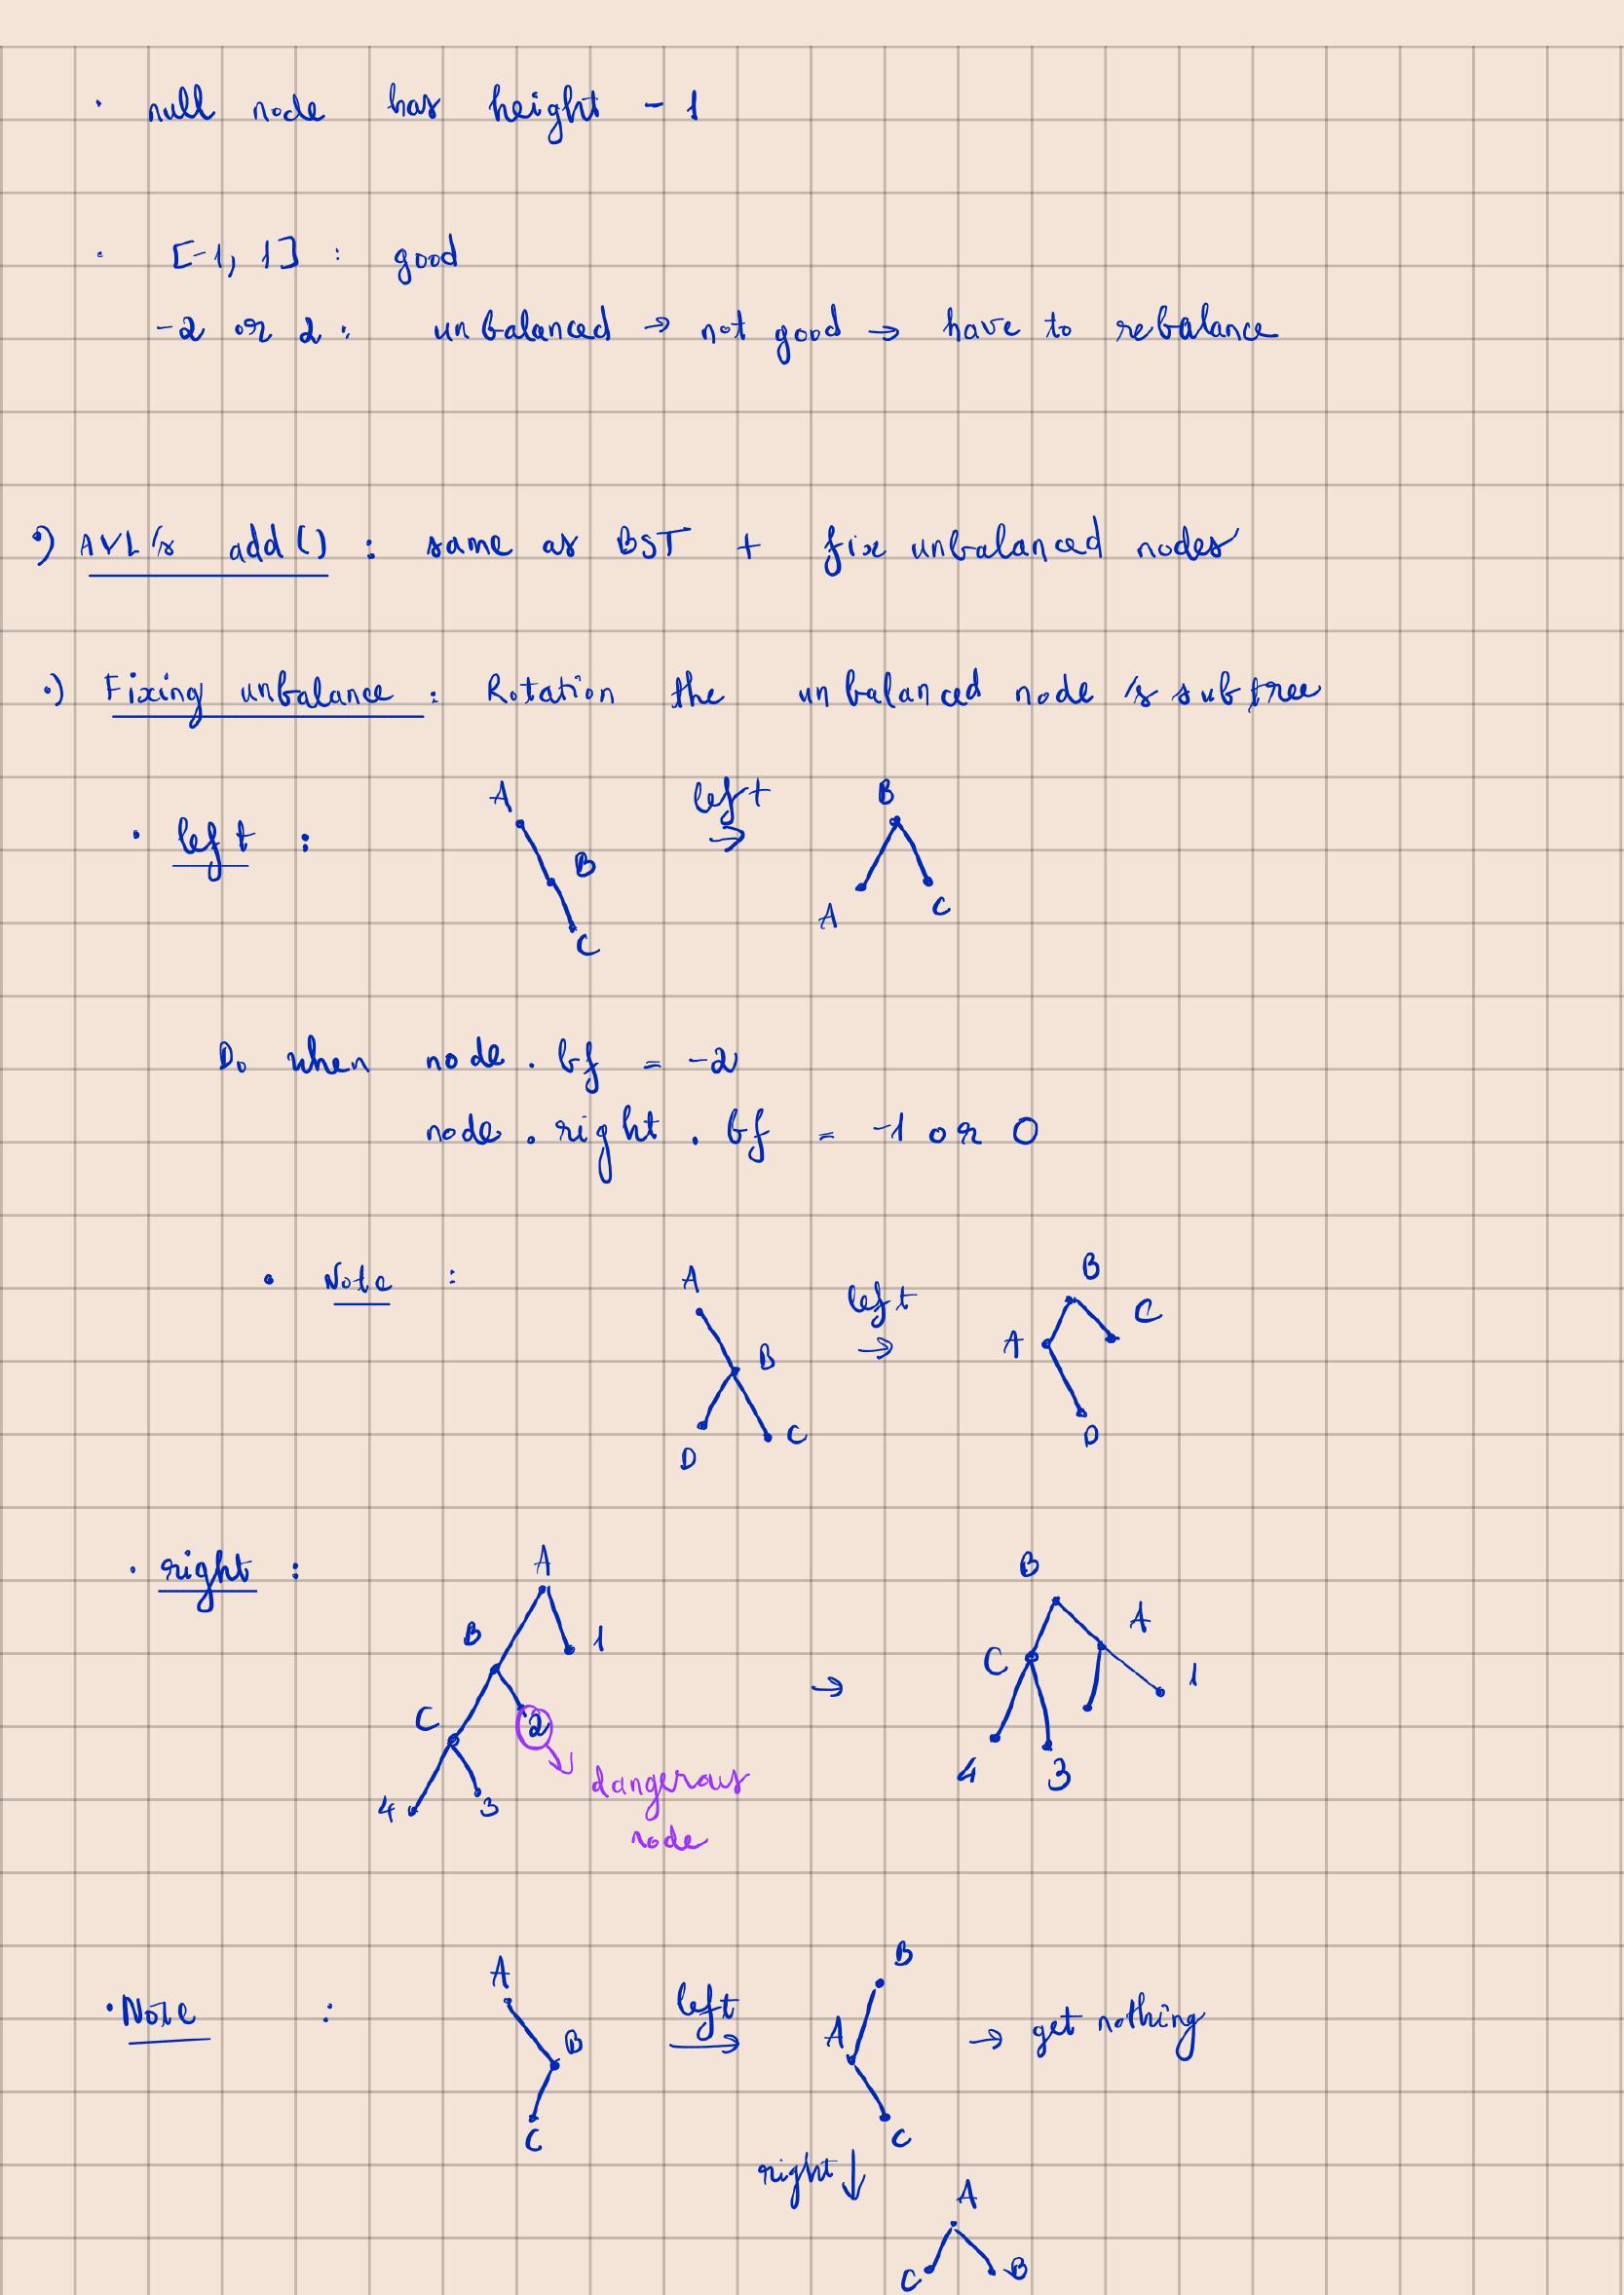 · null node has height -1
· [-1, 1] : good
-2 or 2 : unbalanced → not good → have to rebalance
•) AVL's add() : same as BST + fix unbalanced nodes
•) Fixing unbalance : Rotation the unbalanced node's subtree
A left B
· left : →
B
A C
C
Do when node . bf = -2
node . right . bf = -1 or 0
• Note : A left B
→ A C
B
D C D
· right : A B
B 1 A
→ C 1
C 2
4 3 dangerous 4 3
node
B
A
· Note : left A → get nothing
B →
C C
right ↓ A
C B